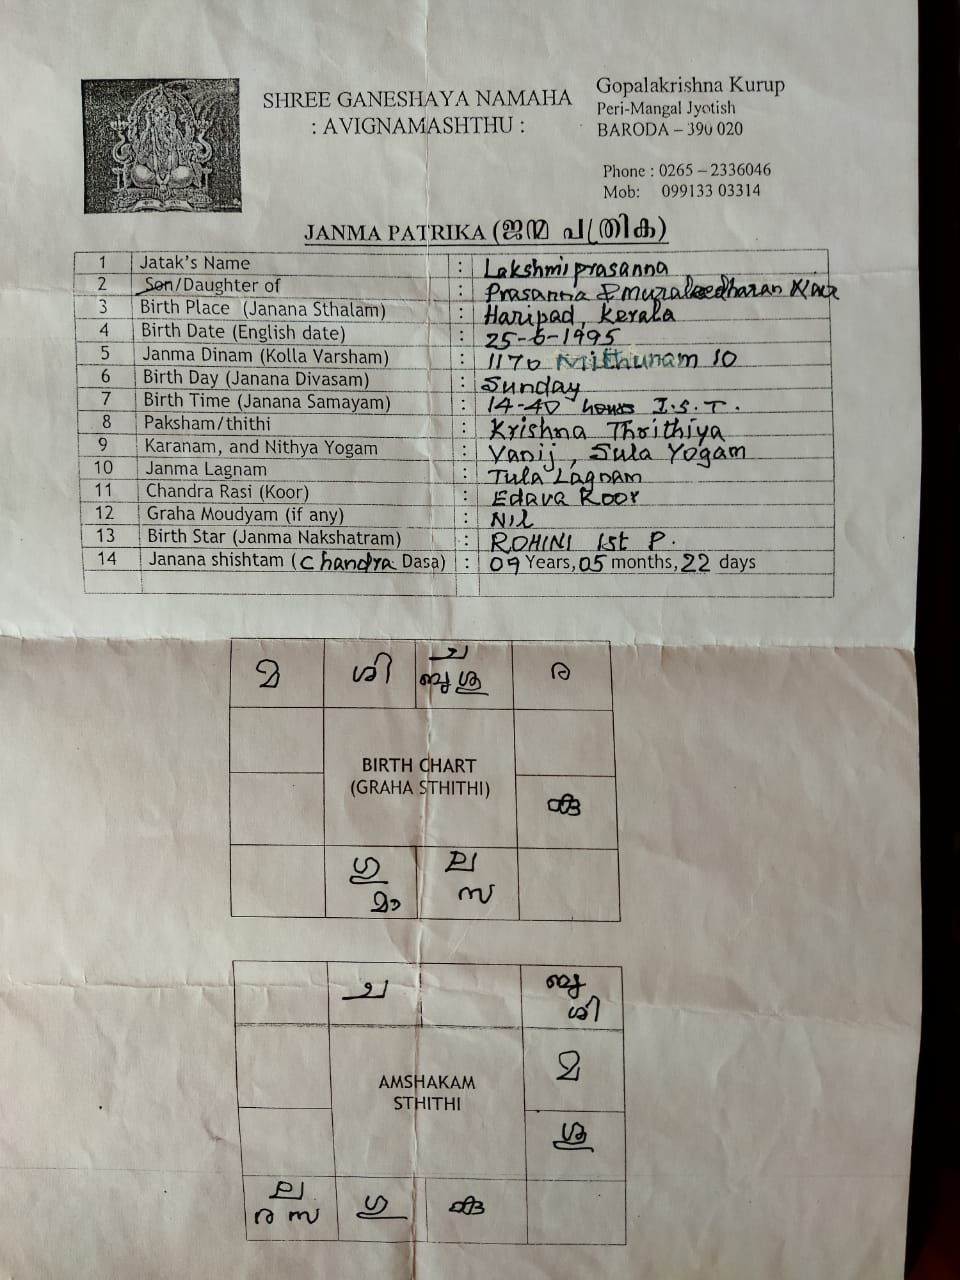 SHREE GANESHAYA NAMAHA
: AVIGNAMASHTHU :
Gopalakrishna Kurup
Peri-Mangal Jyotish
BARODA – 390 020
Phone : 0265 – 2336046
Mob: 099133 03314
JANMA PATRIKA (ജന്മ പത്രിക)
1 Jatak's Name : Lakshmi prasanna
2 Son/Daughter of : Prasanna & muraleedharan Nair
3 Birth Place (Janana Sthalam) : Haripad, Kerala
4 Birth Date (English date) : 25-6-1995
5 Janma Dinam (Kolla Varsham) : 1170 Mithunam 10
6 Birth Day (Janana Divasam) : Sunday
7 Birth Time (Janana Samayam) : 14-40 hours I.S.T.
8 Paksham/thithi : Krishna Thrithiya
9 Karanam, and Nithya Yogam : Vanij, Sula Yogam
10 Janma Lagnam : Tula Lagnam
11 Chandra Rasi (Koor) : Edava Koor
12 Graha Moudyam (if any) : Nil
13 Birth Star (Janma Nakshatram) : ROHINI 1st P.
14 Janana shishtam (Chandra Dasa) : 09 Years, 05 months, 22 days
മ ശി ച ര
ബു ശു
BIRTH CHART
(GRAHA STHITHI)
ഗു ല
മാ സ
ച ബു
ശി
AMSHAKAM
STHITHI
മ
ശു
ല
ര സ ഗു